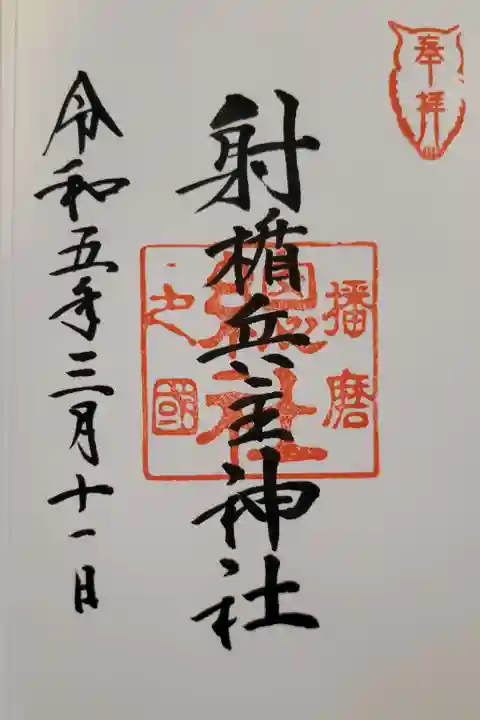 奉拝
播磨
射楯兵主神社
之國
令和五年三月十一日